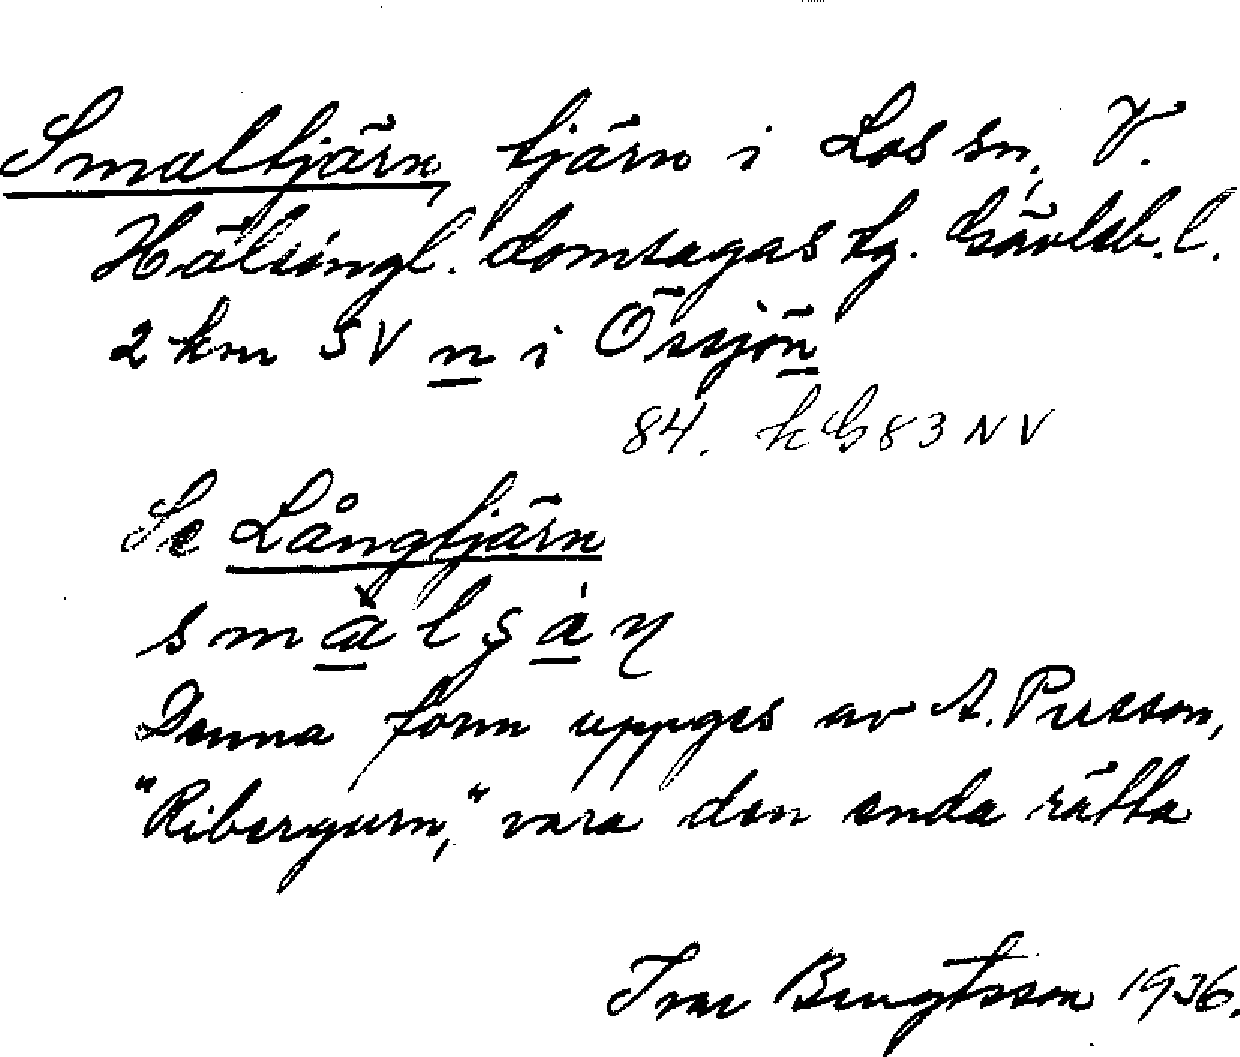 Smaltjärn, tjärn i Los sn, V.
Hälsingl. domsagas tg. Gävleb. l.
2 km SV n i Össjön
84. kG83NV
Se Långtjärn
smàlşáɳ
Denna form uppges av A. Persson,
"Ribergurn," vara den enda rätta
Ivar Bengtsson 1936.